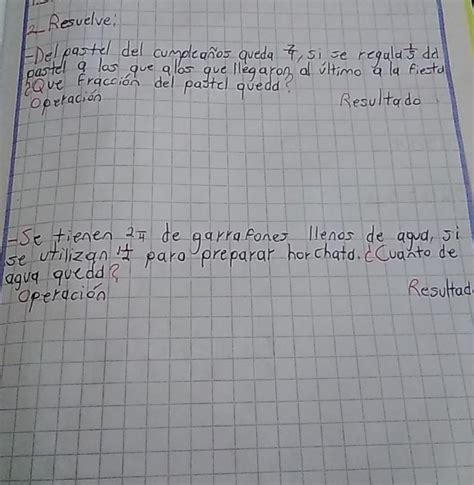 2- Resuelve:
-Del pastel del cumpleaños queda /4, si se regula 1/5 dd
pastel a las que allos que llegaron al último a la fiesta
¿Que Fracción del pastel quedd?
Operación Resultado
-Se tienen de garrafones llenos de agua, si
se utilizan para preparar horchata. ¿Cuanto de
agua quedd?
Operación Resultad